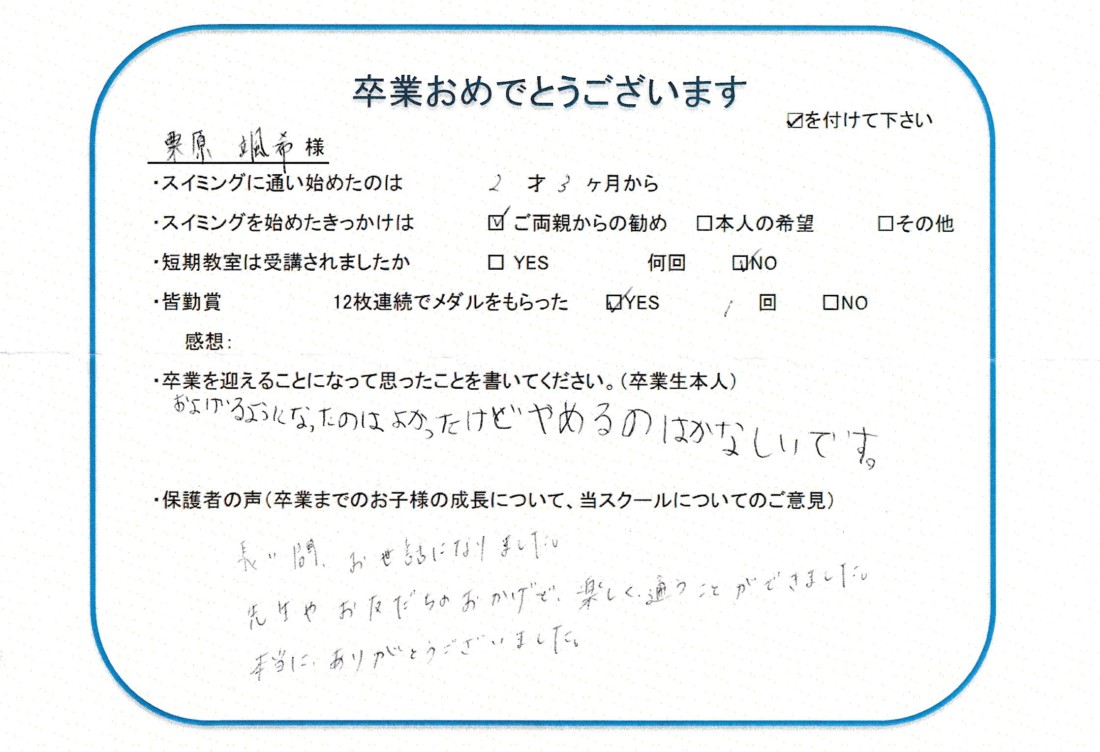 卒業おめでとうございます
☑を付けて下さい
栗原 颯希 様
・スイミングに通い始めたのは 2 才 3 ヶ月から
・スイミングを始めたきっかけは ☑ ご両親からの勧め □本人の希望 □その他
・短期教室は受講されましたか □ YES 何回 ☑NO
・皆勤賞 12枚連続でメダルをもらった ☑YES 1 回 □NO
感想:
・卒業を迎えることになって思ったことを書いてください。(卒業生本人)
およげるようになったのはよかったけどやめるのはかなしいです。
・保護者の声(卒業までのお子様の成長について、当スクールについてのご意見)
長い間、お世話になりました。
先生やお友だちのおかげで、楽しく通うことができました。
本当に、ありがとうございました。